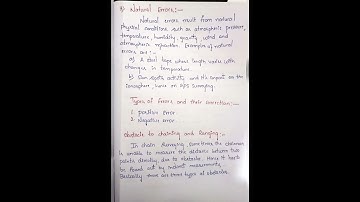 3) Natural Errors:-
Natural errors result from natural
physical conditions such as atmospheric pressure,
temperature, humidity, gravity, wind and
atmospheric refraction. Examples of natural
errors are:-
a) A steel tape whose length varies with
changes in temperature.
b) Sun spots activity and its impact on the
ionosphere, hence on GPS surveying.
Types of Errors and their correction:-
1. positive Error
2. Negative error
Obstacle to chaining and Ranging:-
In chain surveying, sometimes the chainman
is unable to measure the distance between two
points directly, due to obstacle. Hence it has to
be found out by indirect measurements.
Basically there are three types of obstacles.